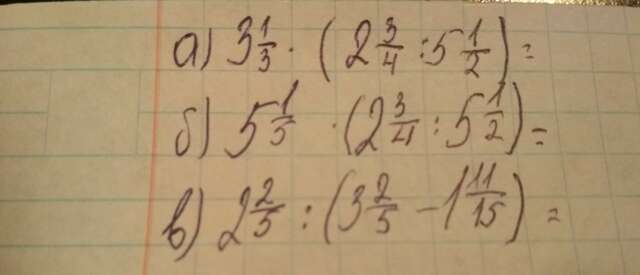 а) 3 1/3 · (2 3/4 : 5 1/2) =
б) 5 1/5 · (2 3/4 : 5 1/2) =
в) 2 2/5 : (3 2/5 - 1 11/15) =